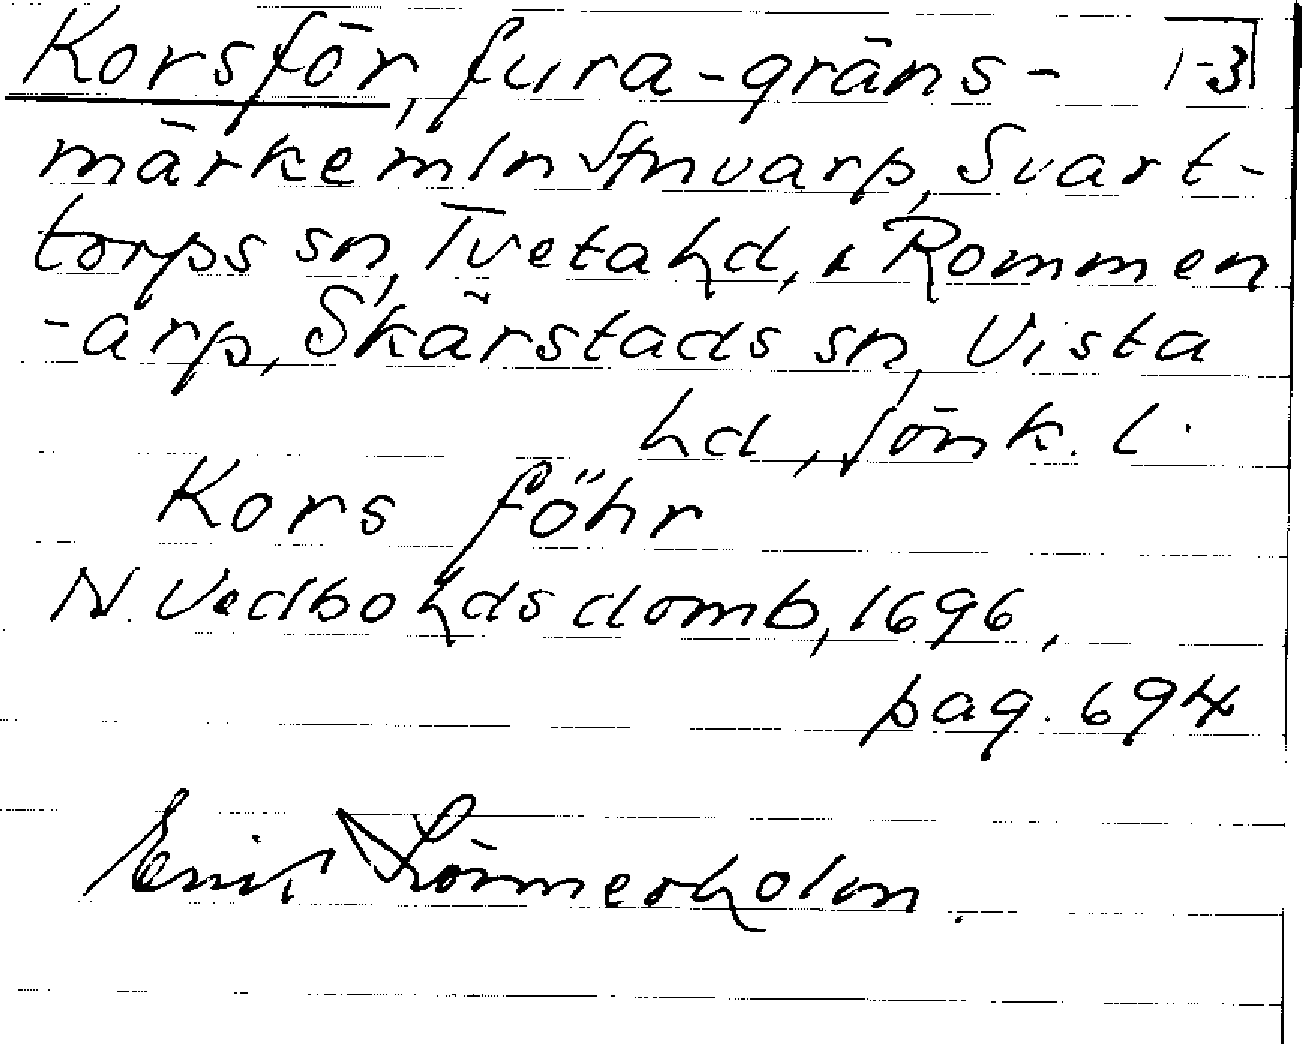 Korsför, fura-gräns- 1-3
märke mln Stnvarp, Svart-
torps sn, Tveta hd, o. Rommen
-arp, Skärstads sn, Vista
hd, Jönk. l.
Kors föhr
N. Vedbo hds domb, 1696,
pag. 694
Linnerholm.